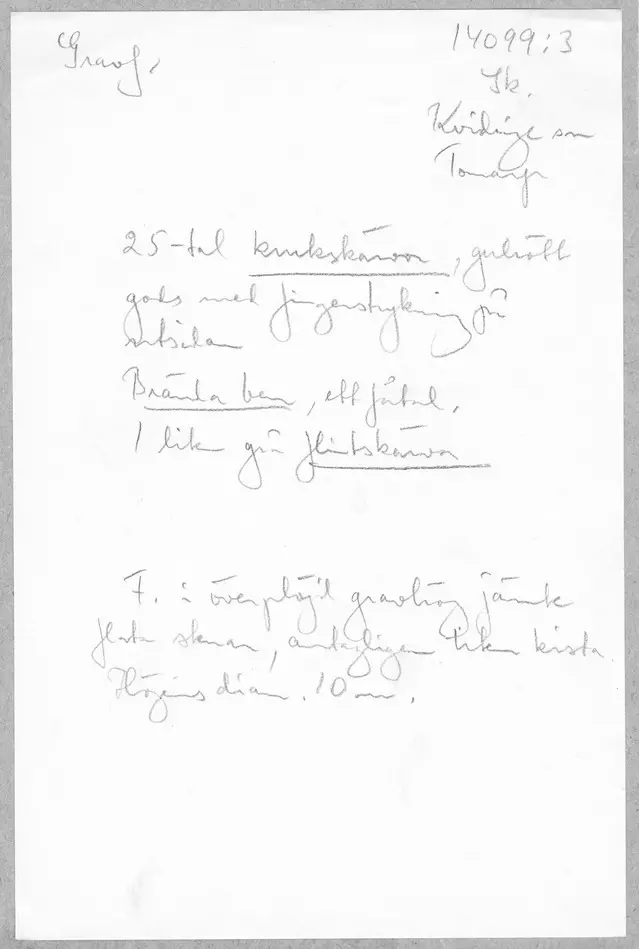 Gravf.
14099:3
Sk.
Kvidinge sn
Tomarp
25-tal krukskärvor, gulrött
gods med fingerstrykning på
utsidan
Brända ben, ett fåtal.
1 liten grå flintskärva
F. i överplöjd gravhög jämte
flata stenar, antagligen liten kista
Högens diam. 10 m.